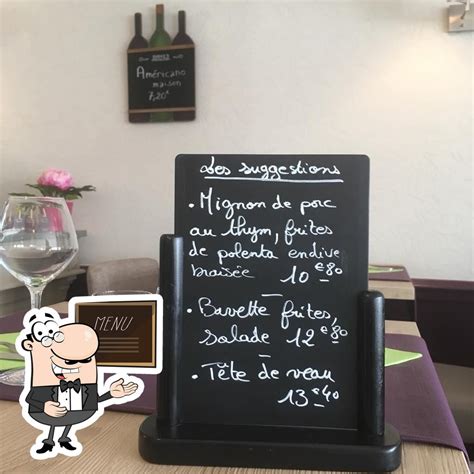 Américano
maison
7,20€
Les suggestions
• Mignon de porc
au thym, frites
de polenta endive
braisée 10€80
• Bavette frites,
salade 12€80
• Tête de veau
13€40
MENU